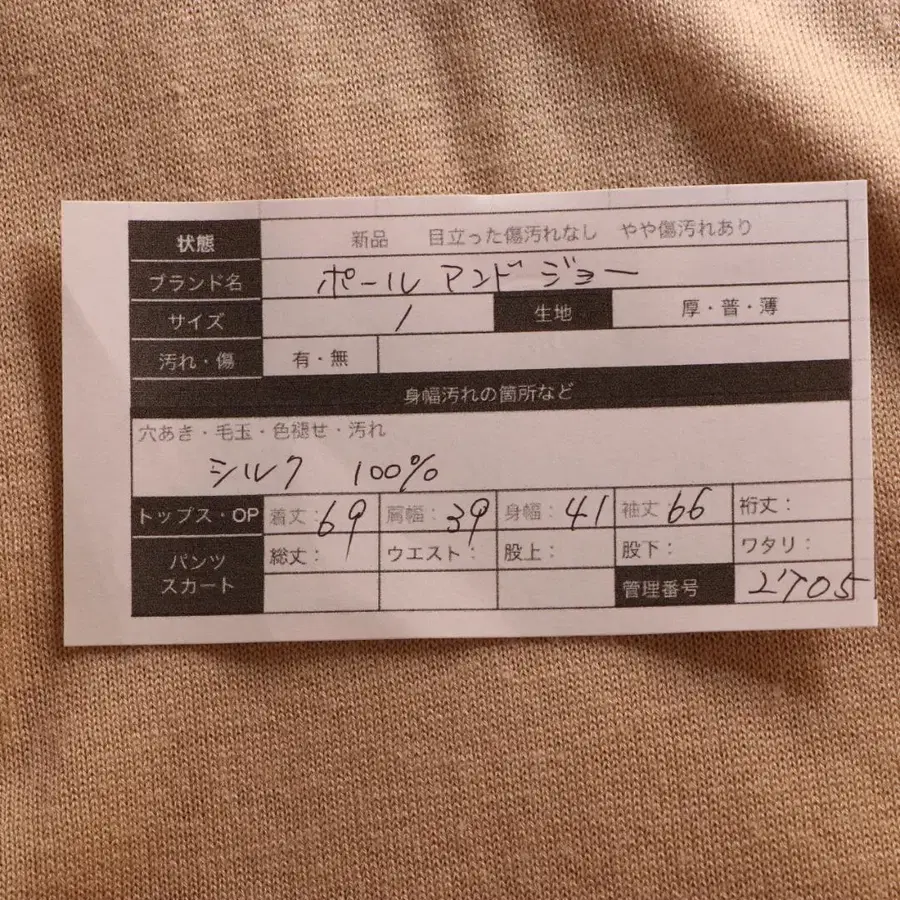 状態 新品 目立った傷汚れなし やや傷汚れあり
ブランド名 ポールアンドジョー
サイズ 1 生地 厚・普・薄
汚れ・傷 有・無
身幅汚れの箇所など
穴あき・毛玉・色褪せ・汚れ
シルク 100%
トップス・OP 着丈:69 肩幅:39 身幅:41 袖丈:66 裄丈:
パンツ スカート 総丈: ウエスト: 股上: 股下: ワタリ:
管理番号 2705